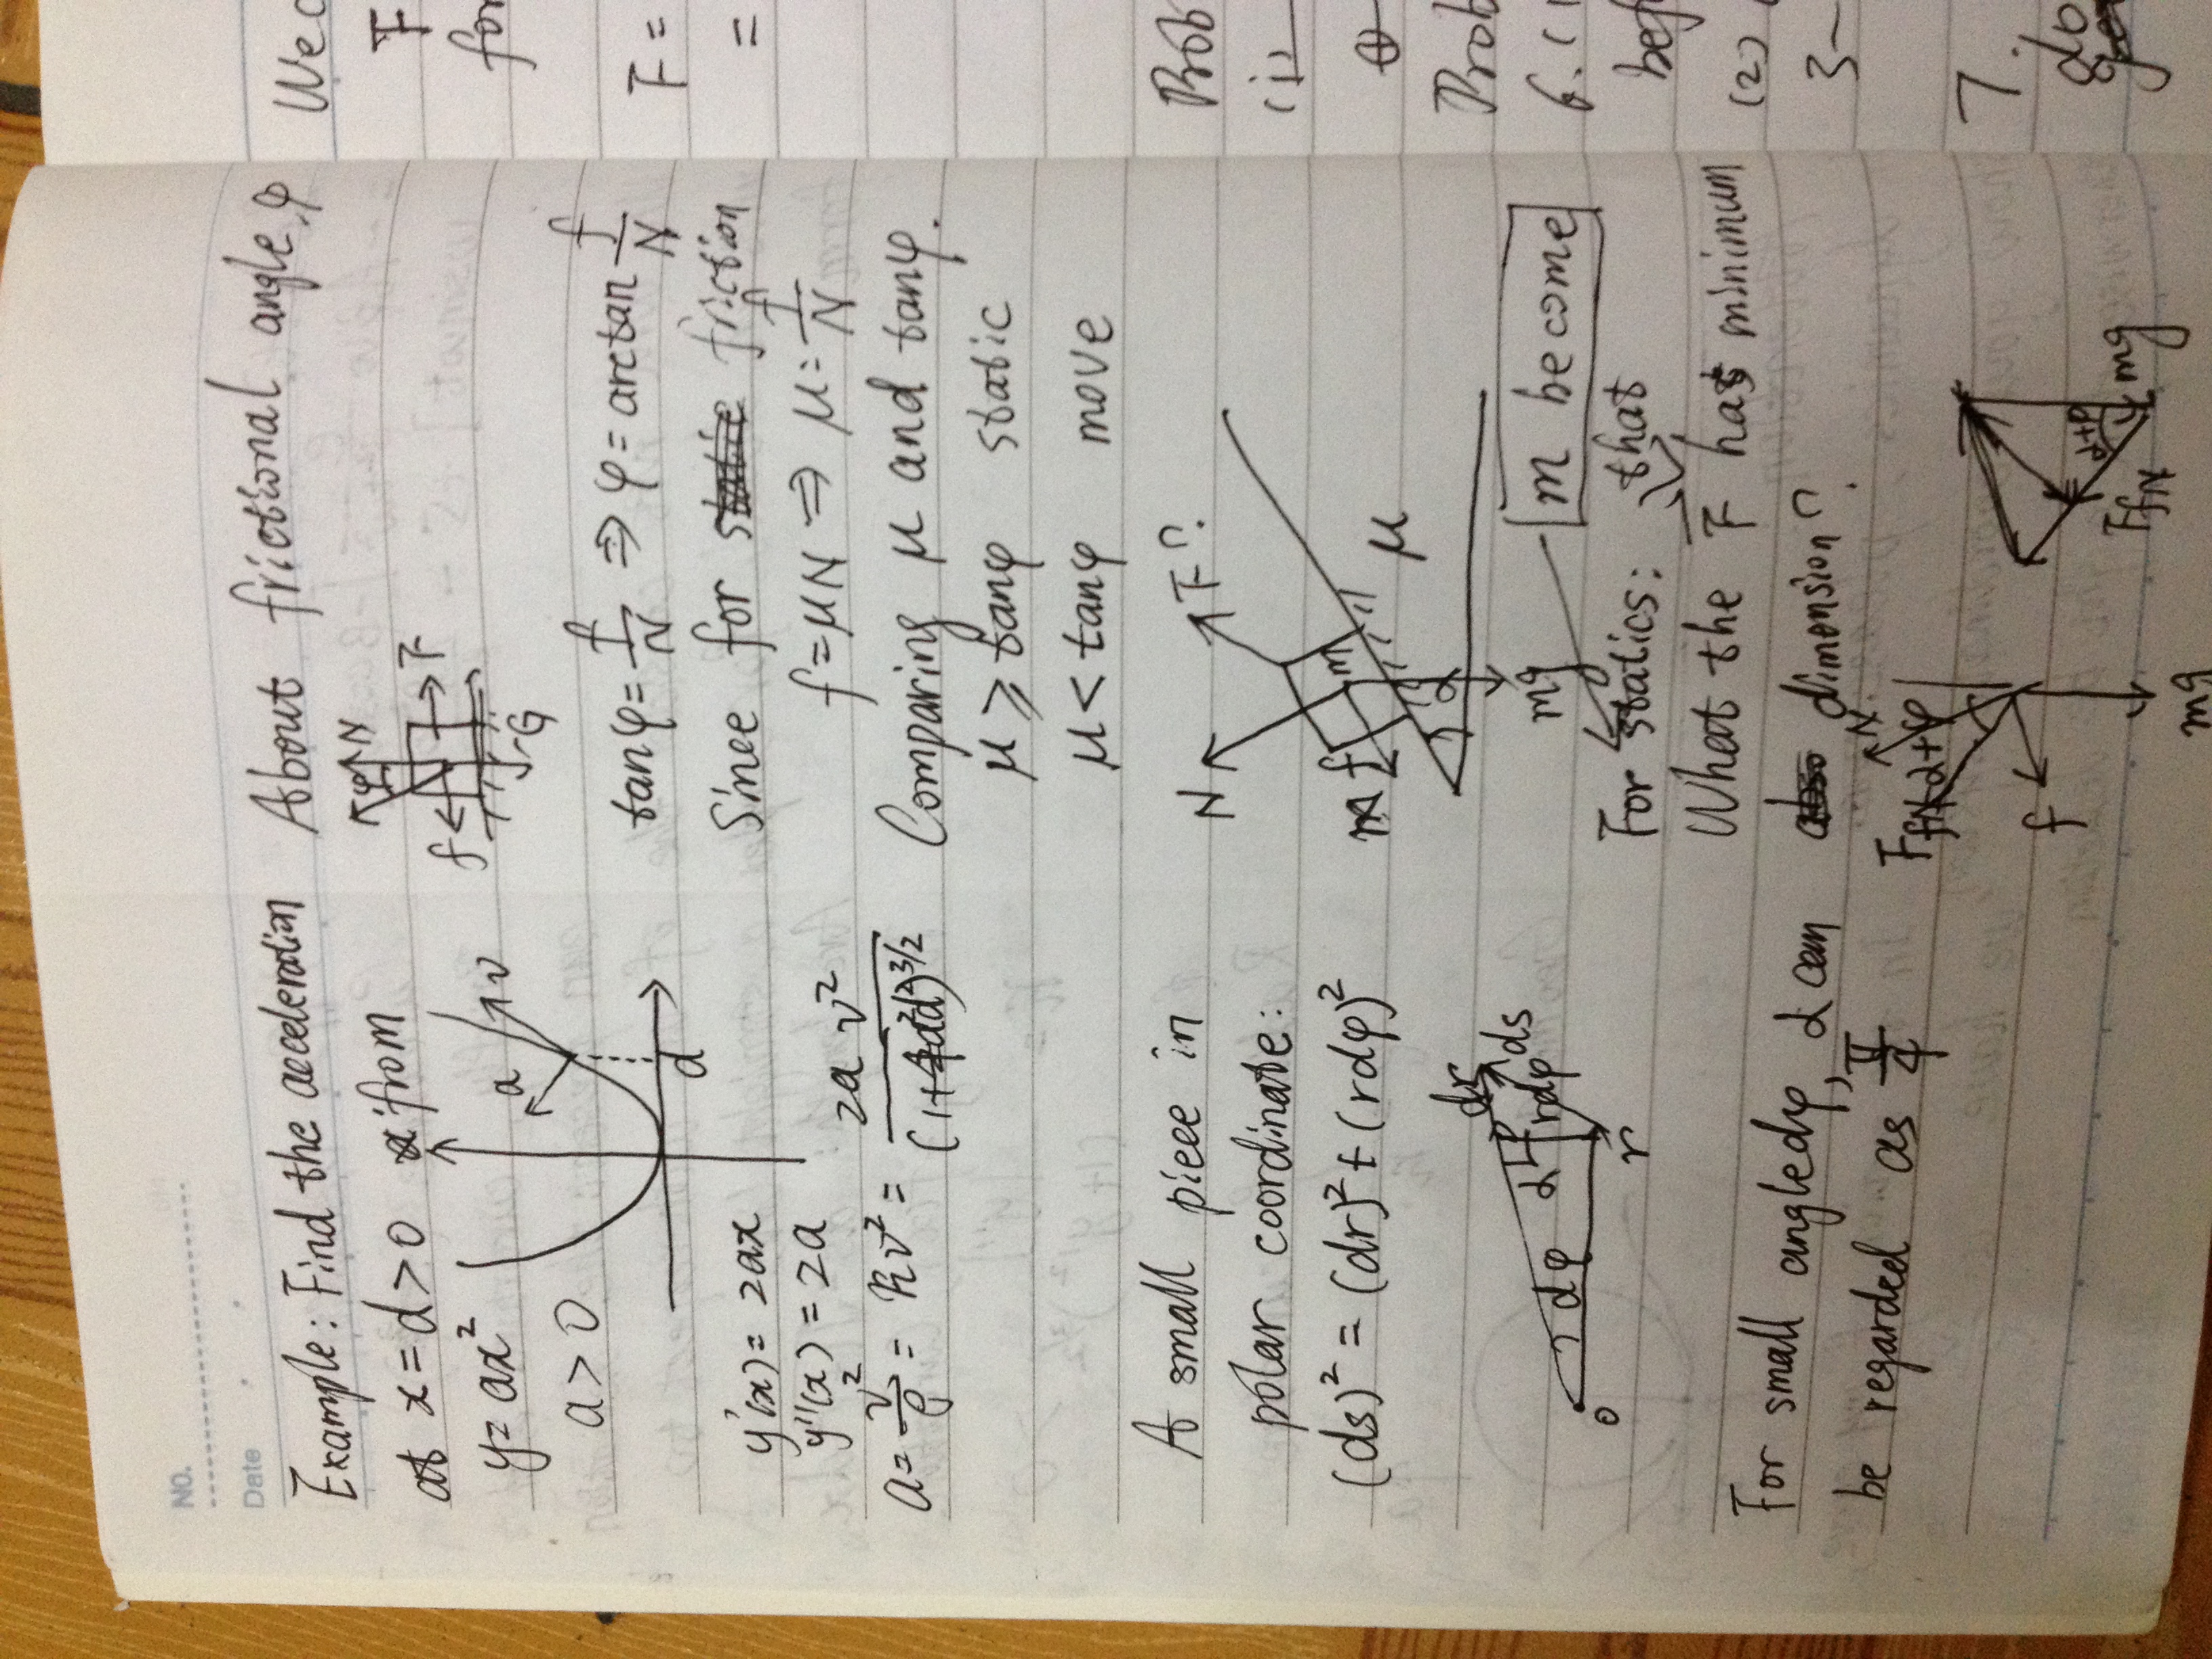 NO.
Date
Example: Find the acceleration
at x = d > 0 from
y = ax²
a > 0
a
v
d
y'(x) = 2ax
y''(x) = 2a
a = v²/ρ = κv² = 2a v²/(1+4a²d²)^3/2
A small piece in
polar coordinate:
(ds)² = (dr)² + (rdφ)²
dr
α
rdφ
ds
dφ
o
r
For small angle dφ, α can
be regarded as π/4
About frictional angle φ
φ
N
f
F
G
tanφ = f/N ⇒ φ = arctan f/N
Since for static friction
f = μN ⇒ μ = f/N
Comparing μ and tanφ.
μ ⩾ tanφ static
μ < tanφ move
N
F?
m f
m
μ
α
mg
m become
For statics: that
What the F has minimum
abso dimension?
N
F fN
α+φ
f
mg
α+φ
F fN
mg
We
F
for
F =
=
Prob
(i)
Prob
6. (1
bef
(2)
3
7.
do